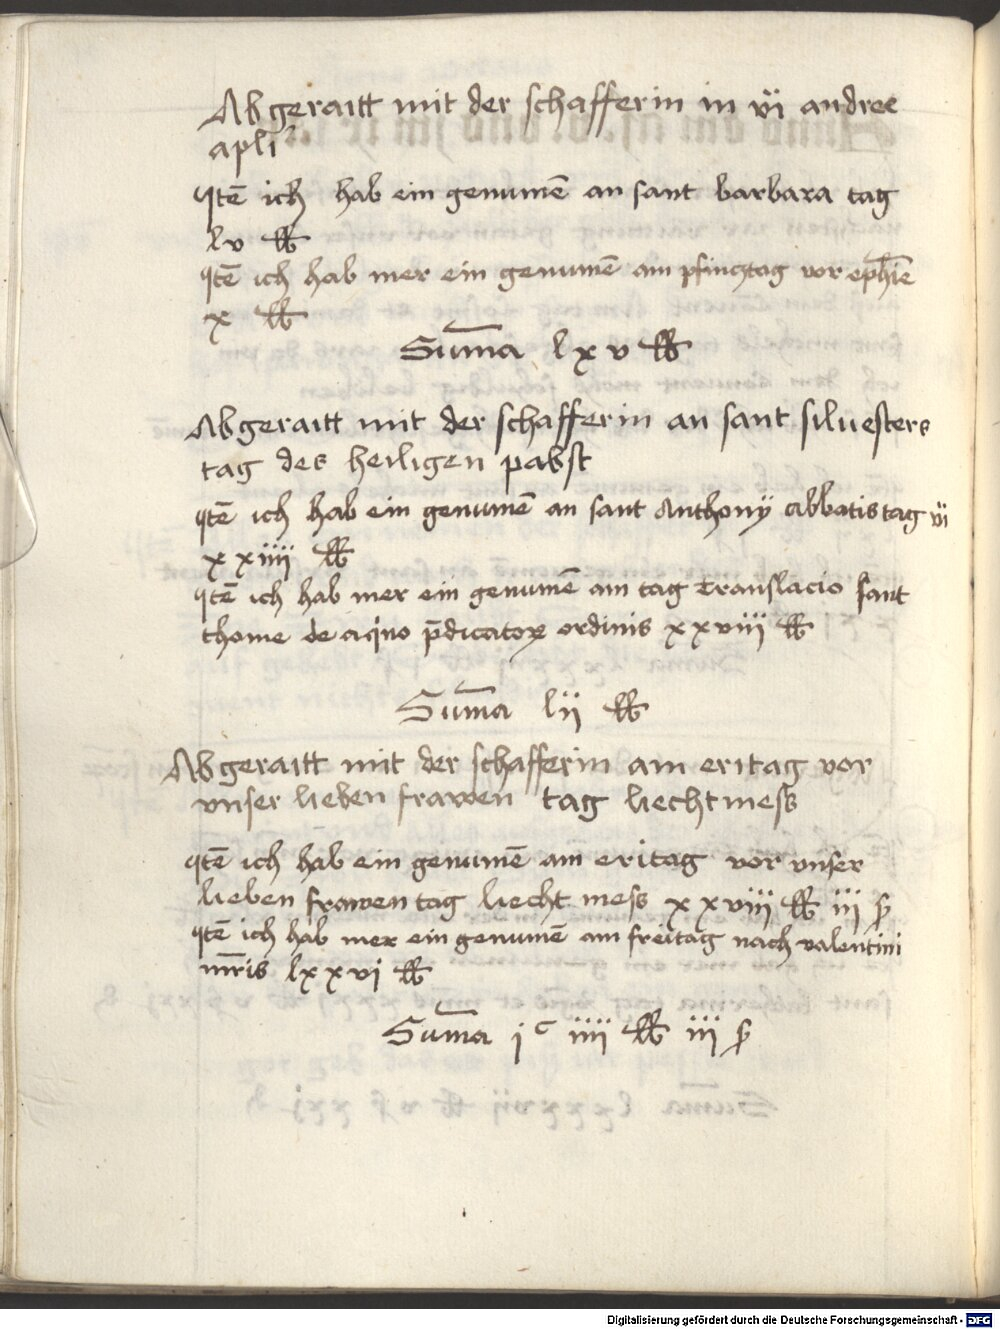 Abgeraitt mit der schafferin in vi andree
apli
Itē ich hab ein genumē an sant barbara tag
lv ℔
Itē ich hab mer ein genumē am pfincztag vor ephīe
x ℔
Sum̄a lxv ℔
Abgeraitt mit der schafferin an sant siluesters
tag des heiligen pabst
Itē ich hab ein genumē an sant Anthony abbatis tag vi
xxiiii ℔
Itē ich hab mer ein genumē am tag Translacio sant
thome de aq̇no p̄dicatoꝝ ordinis xxviii ℔
Sum̄a lii ℔
Abgeraitt mit der schafferin am eritag vor
vnser lieben frawen tag liechtmess
Itē ich hab ein genumē am eritag vor vnser
lieben frawen tag liecht mess xxviii ℔ iii ß
Itē ich hab mer ein genumē am freitag nach valentini
mr̄is lxxvi ℔
Sum̄a jᶜ iiii ℔ iii ß
Digitalisierung gefördert durch die Deutsche Forschungsgemeinschaft - DFG